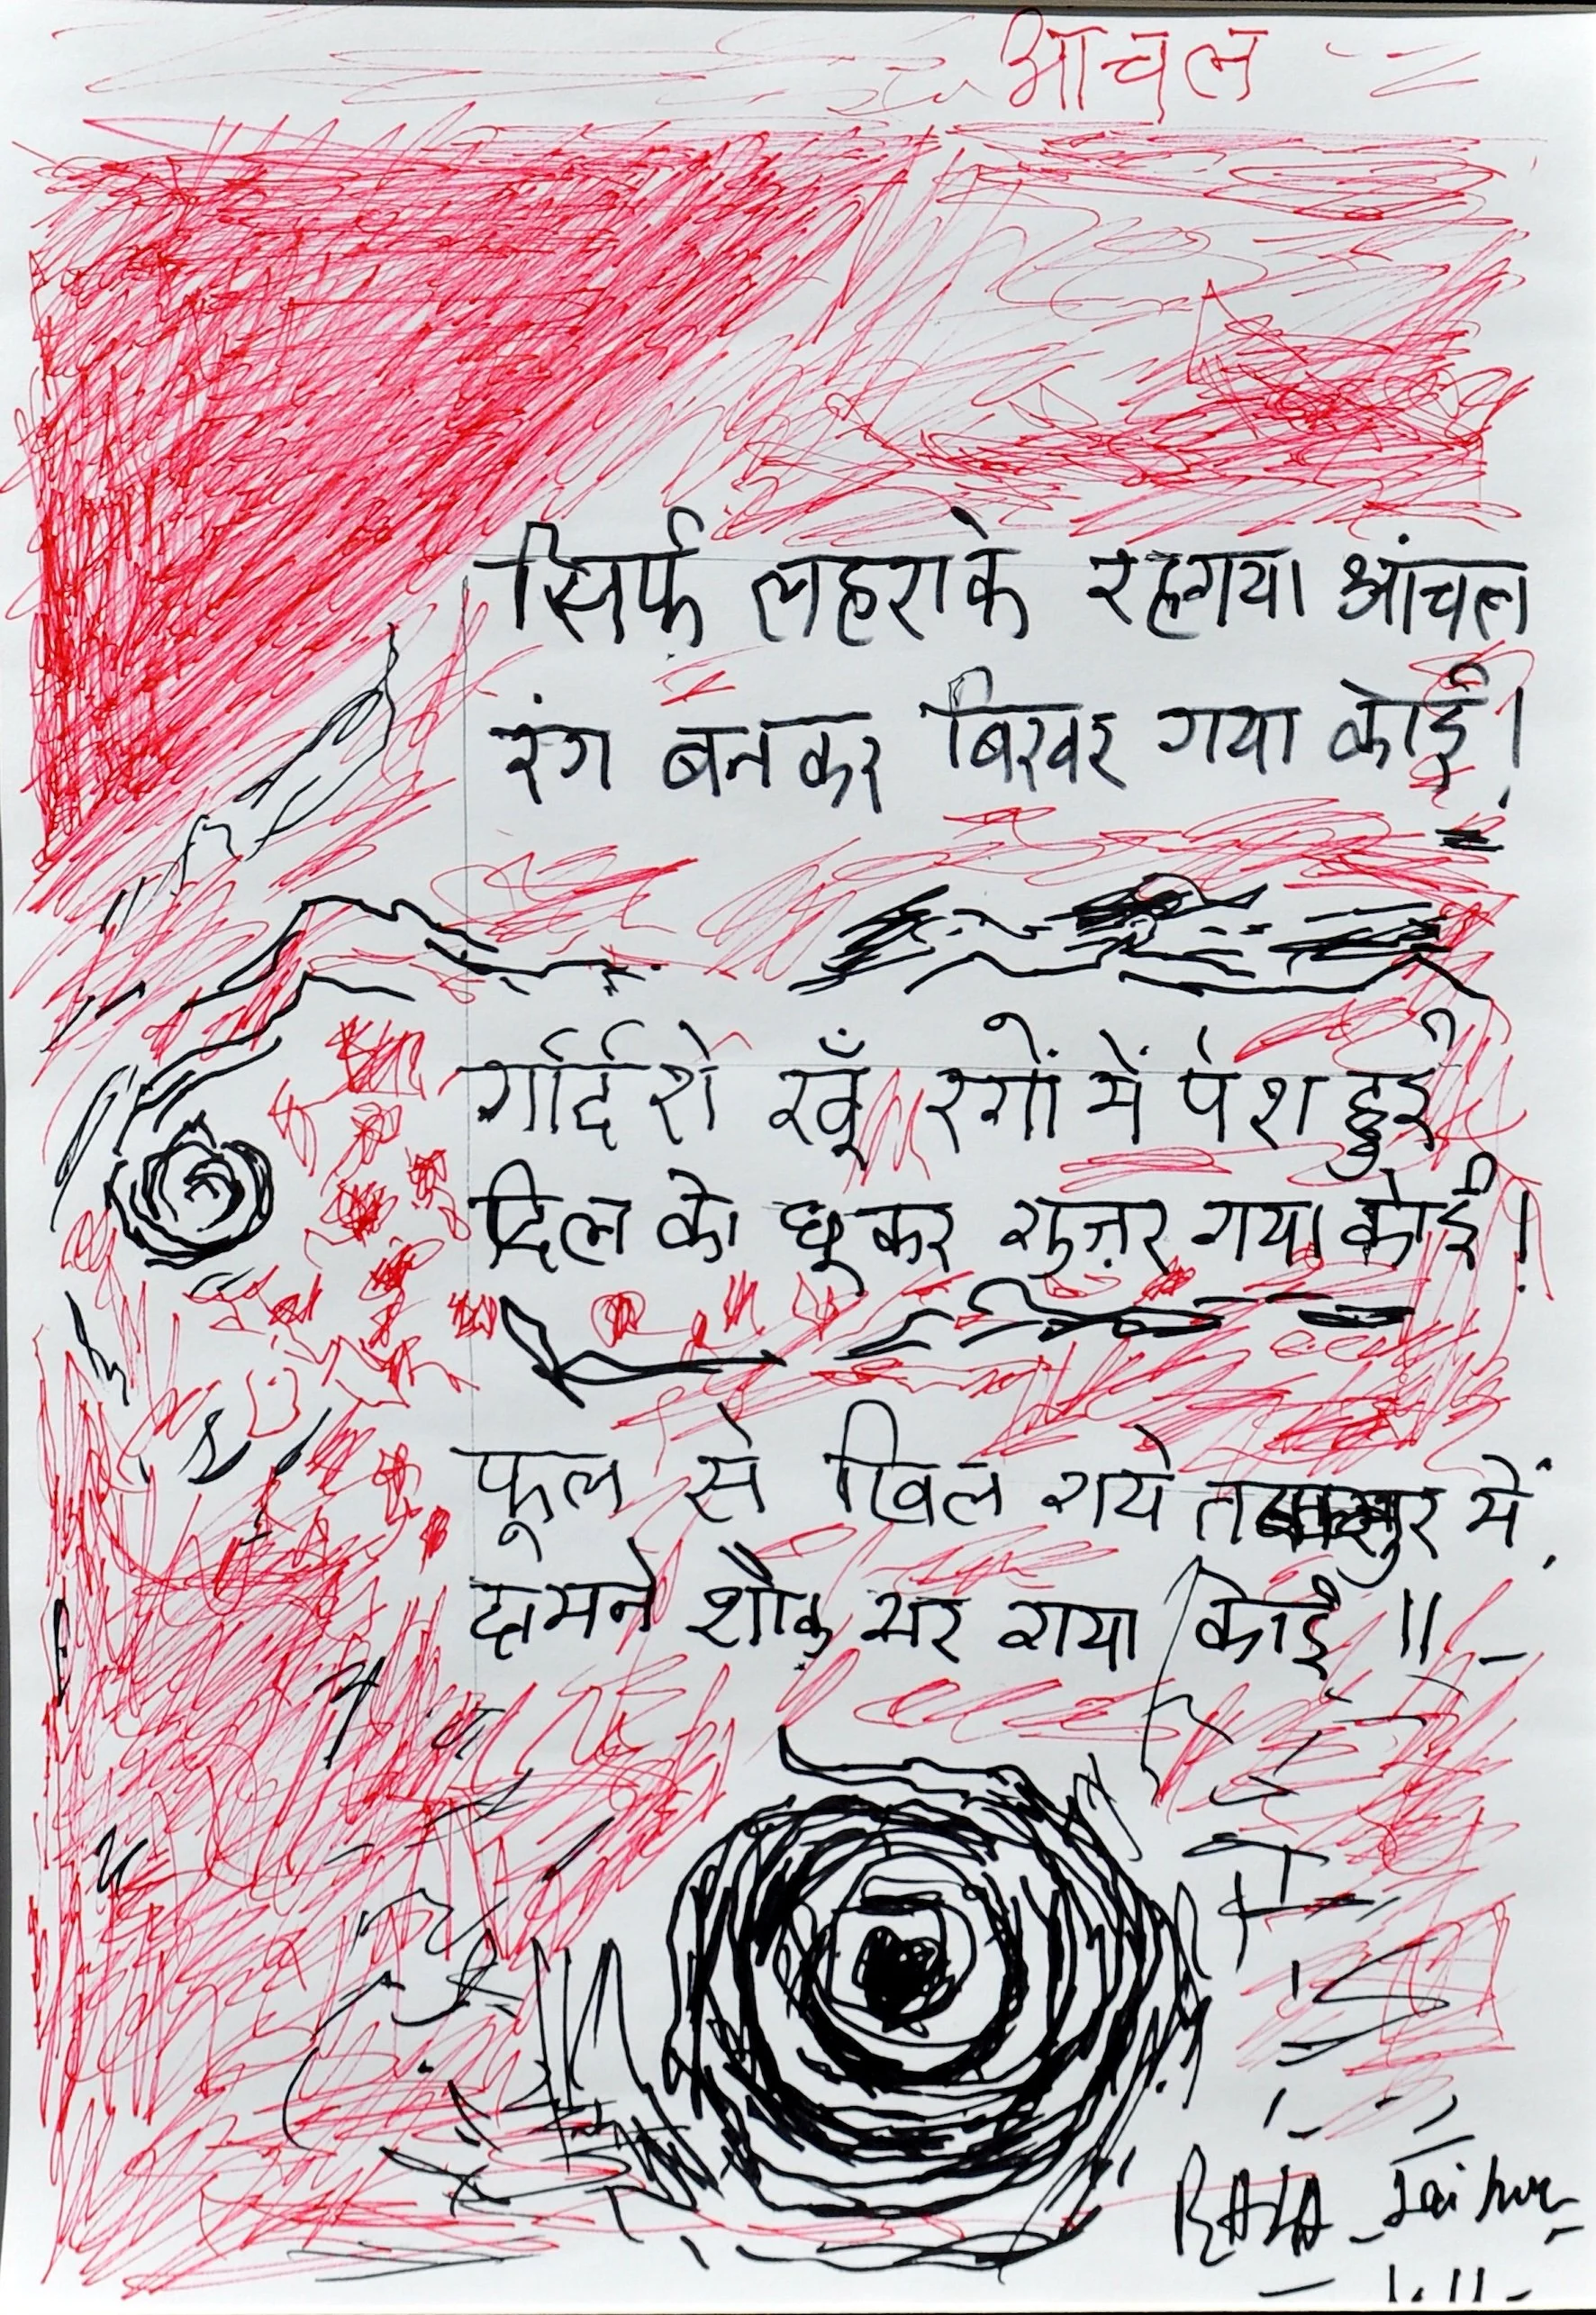 आंचल
सिर्फ़ लहराके रहगया आंचल
रंग बनकर बिखर गया कोई।
गर्दिशे खूँ रगों में पेश हुई
दिल को छूकर गुज़र गया कोई।
फूल से खिल गये में,
दामने शौक़ भर गया कोई ॥
Jaipur
1.11